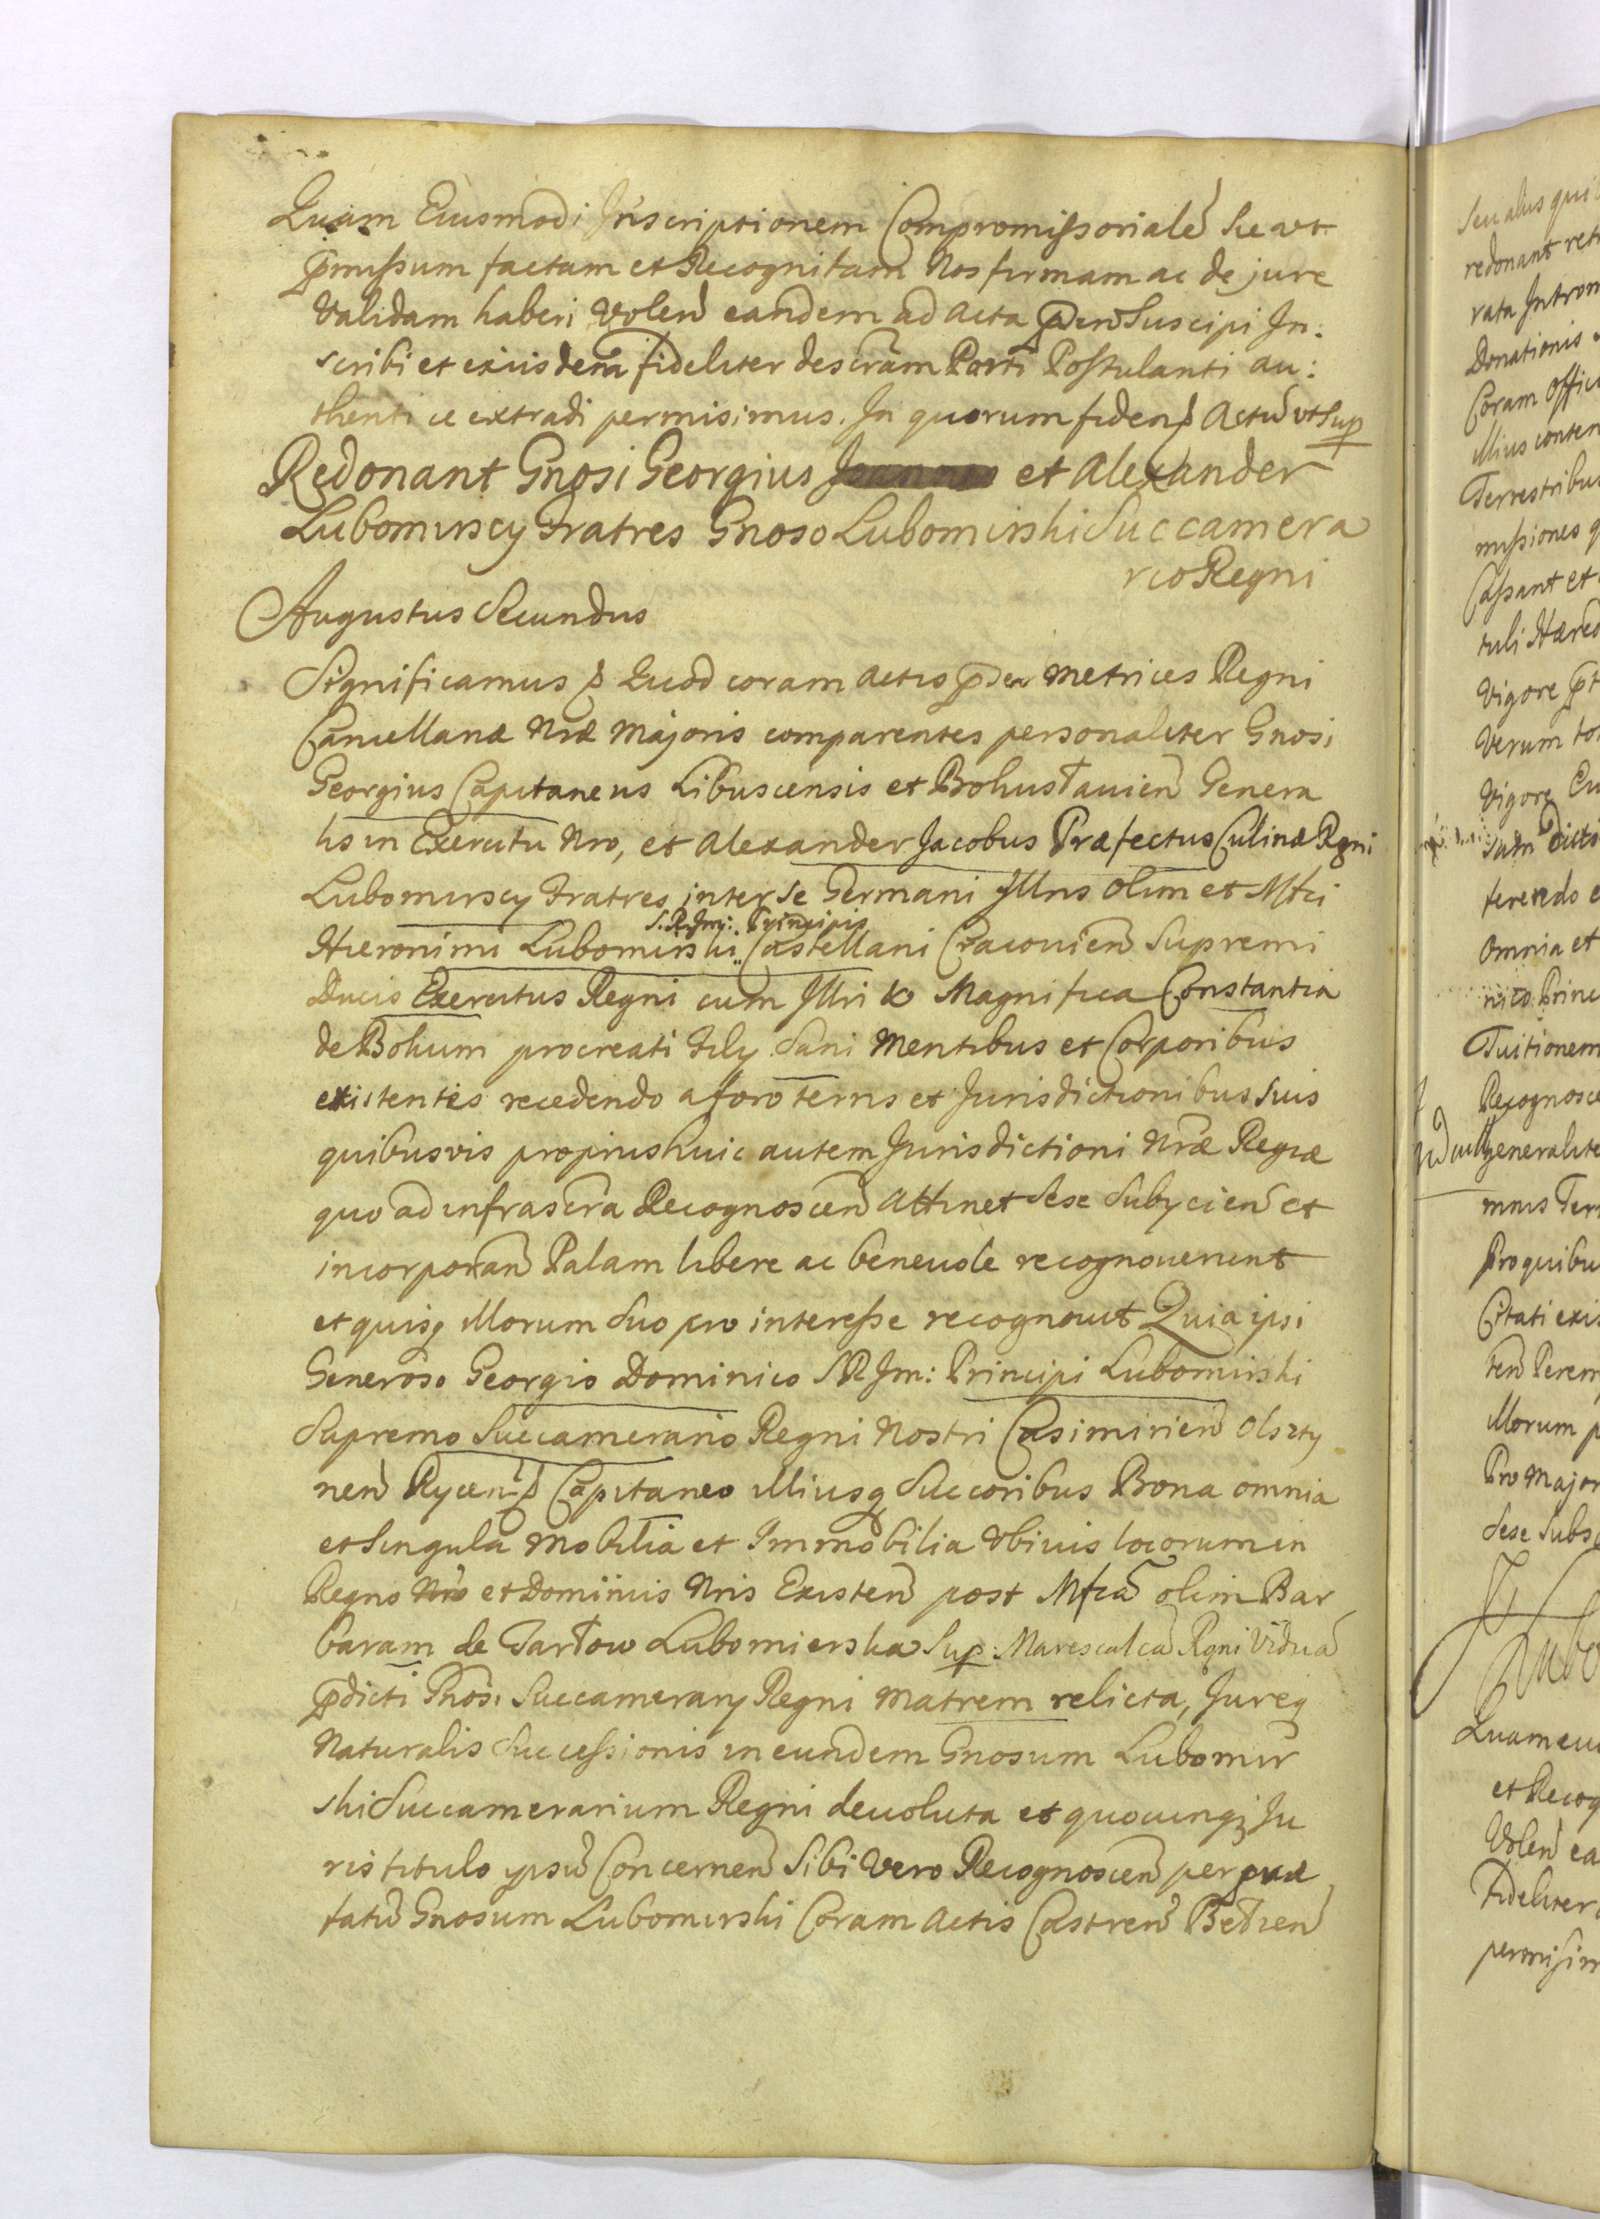 Quam Eiusmodi Inscriptionem Compromissorialē sic ut
p̄missum factam et Recognitam Nos firmam ac de jure
Validam haberi Volen̄ eandem ad Acta p̄den̄ Suscipi In:
scribi et eiusdem fideliter descr̄am Parti Postulanti au:
thentice extradi permisimus. In quorum fidem Actū ut Sup
Redonant Gnosi Georgius et Alexander
Lubomirscy Fratres Gnoso Lubomirski Succamera
rio Regni
Augustus Secundus
Significamus Quod coram Actis p̄den̄ Metrices Regni
Cancellariæ Nræ Majoris comparentes personaliter Gnosi
Georgius Capitaneus Libuscensis et Bohuslavien̄ Genera
lis in Exercitu Nro, et Alexander Jacobus Præfectus Culinæ Rgni
Lubomirscy Fratres inter se Germani Illris olim et Mfci
S. R. Im: Principis
Hieronimi Lubomirski Castellani Cracovien̄ Supremi
Ducis Exercitus Regni cum Illri Magnifica Constantia
de Bohum procreati Filÿ Sani Mentibus et Corporibus
existentes recedendo a foro terris et Jurisdictionibus suis
quibusvis proprijs huic autem Jurisdictioni Nræ Regiæ
quo ad infrascr̄a Recognoscen̄ attinet Sese Subÿcien̄ et
incorporan̄ Palam libere ac benevole recognoverunt
et quisq illorum Suo pro interesse recognovit Quia ipsi
Generoso Georgio Dominico SR Im: Principi Lubomirski
Supremo Succamerario Regni Nostri Casimirien̄ Olszty
nen̄ Rycen̄ Capitaneo illiusq Succoribus Bona omnia
et Singula Mobilia et Immobilia ubivis locorum in
Regno Nro et Dominiis Nris Existen̄ post Mfcā olim Bar
baram de Tarłow Lubomierska Sup: Marescalcā Rgni Viduā
p̄dicti Gnosi Succamerarÿ Regni Matrem relicta, Jureq
Naturalis Successionis in eundem Gnosum Lubomir
ski Succamerarium Regni devoluta et quocunqz Ju
ris titulo ipsū Concernen̄ Sibi vero Recognoscen̄ per præ
fatū Gnosum Lubomirski Coram Actis Castren̄ Biecien̄
Seu alus
redonant
rata
Donationis
Coram
illius
Terrestribus
missiones
Cassant et
tuli
Vigore
Verum
Vigore
Omnia et
Tuitionem
generalite
mnis
Pro quibu
Citati
illorum
Pro Major
Sese
et Recog
Volen̄ ea
Fideliter
permisim